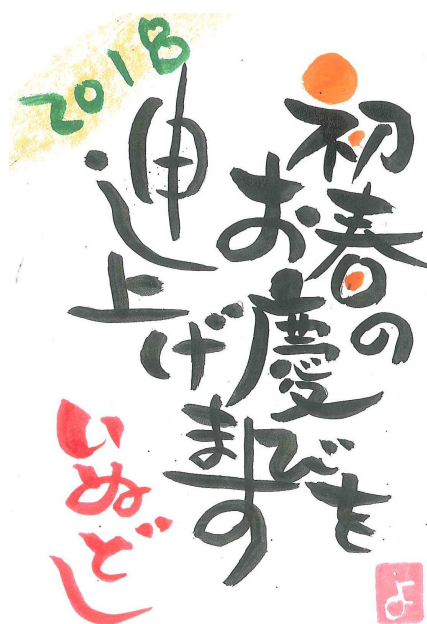 2018
初春の
お慶びを
申し上げます
いぬどし
よ